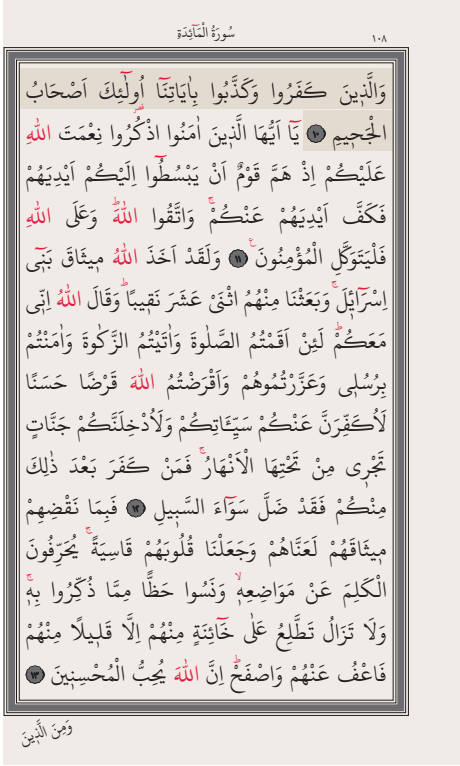 سُورَةُ الْمَٓائِدَةِ
١٠٨
وَالَّذٖينَ كَفَرُوا وَكَذَّبُوا بِاٰيَاتِنَٓا اُو۬لٰٓئِكَ اَصْحَابُ
الْجَحٖيمِ ﴿١٠﴾ يَٓا اَيُّهَا الَّذٖينَ اٰمَنُوا اذْكُرُوا نِعْمَتَ اللّٰهِ
عَلَيْكُمْ اِذْ هَمَّ قَوْمٌ اَنْ يَبْسُطُٓوا اِلَيْكُمْ اَيْدِيَهُمْ
فَكَفَّ اَيْدِيَهُمْ عَنْكُمْۚ وَاتَّقُوا اللّٰهَؕ وَعَلَى اللّٰهِ
فَلْيَتَوَكَّلِ الْمُؤْمِنُونَࣖ ﴿١١﴾ وَلَقَدْ اَخَذَ اللّٰهُ مٖيثَاقَ بَنٖٓي
اِسْرَٓائٖلَۚ وَبَعَثْنَا مِنْهُمُ اثْنَيْ عَشَرَ نَقٖيبًاؕ وَقَالَ اللّٰهُ اِنّٖي
مَعَكُمْؕ لَئِنْ اَقَمْتُمُ الصَّلٰوةَ وَاٰتَيْتُمُ الزَّكٰوةَ وَاٰمَنْتُمْ
بِرُسُلٖي وَعَزَّرْتُمُوهُمْ وَاَقْرَضْتُمُ اللّٰهَ قَرْضًا حَسَنًا
لَاُكَفِّرَنَّ عَنْكُمْ سَيِّـَٔاتِكُمْ وَلَاُدْخِلَنَّكُمْ جَنَّاتٍ
تَجْرٖي مِنْ تَحْتِهَا الْاَنْهَارُۚ فَمَنْ كَفَرَ بَعْدَ ذٰلِكَ
مِنْكُمْ فَقَدْ ضَلَّ سَوَٓاءَ السَّبٖيلِ ﴿١٢﴾ فَبِمَا نَقْضِهِمْ
مٖيثَاقَهُمْ لَعَنَّاهُمْ وَجَعَلْنَا قُلُوبَهُمْ قَاسِيَةًۚ يُحَرِّفُونَ
الْكَلِمَ عَنْ مَوَاضِعِهٖۙ وَنَسُوا حَظًّا مِمَّا ذُكِّرُوا بِهٖۚ
وَلَا تَزَالُ تَطَّلِعُ عَلٰى خَٓائِنَةٍ مِنْهُمْ اِلَّا قَلٖيلًا مِنْهُمْ
فَاعْفُ عَنْهُمْ وَاصْفَحْؕ اِنَّ اللّٰهَ يُحِبُّ الْمُحْسِنٖينَ ﴿١٣﴾
وَمِنَ الَّذٖينَ